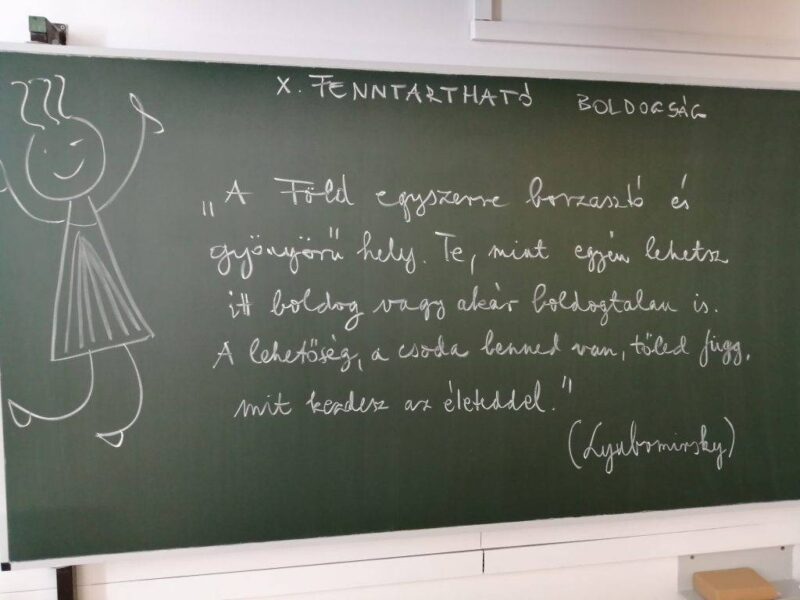 X. FENNTARTHATÓ BOLDOGSÁG
„A Föld egyszerre borzasztó és
gyönyörű hely. Te, mint egyén lehetsz
itt boldog vagy akár boldogtalan is.
A lehetőség, a csoda benned van, tőled függ,
mit kezdesz az életeddel."
(Lyubomirsky)